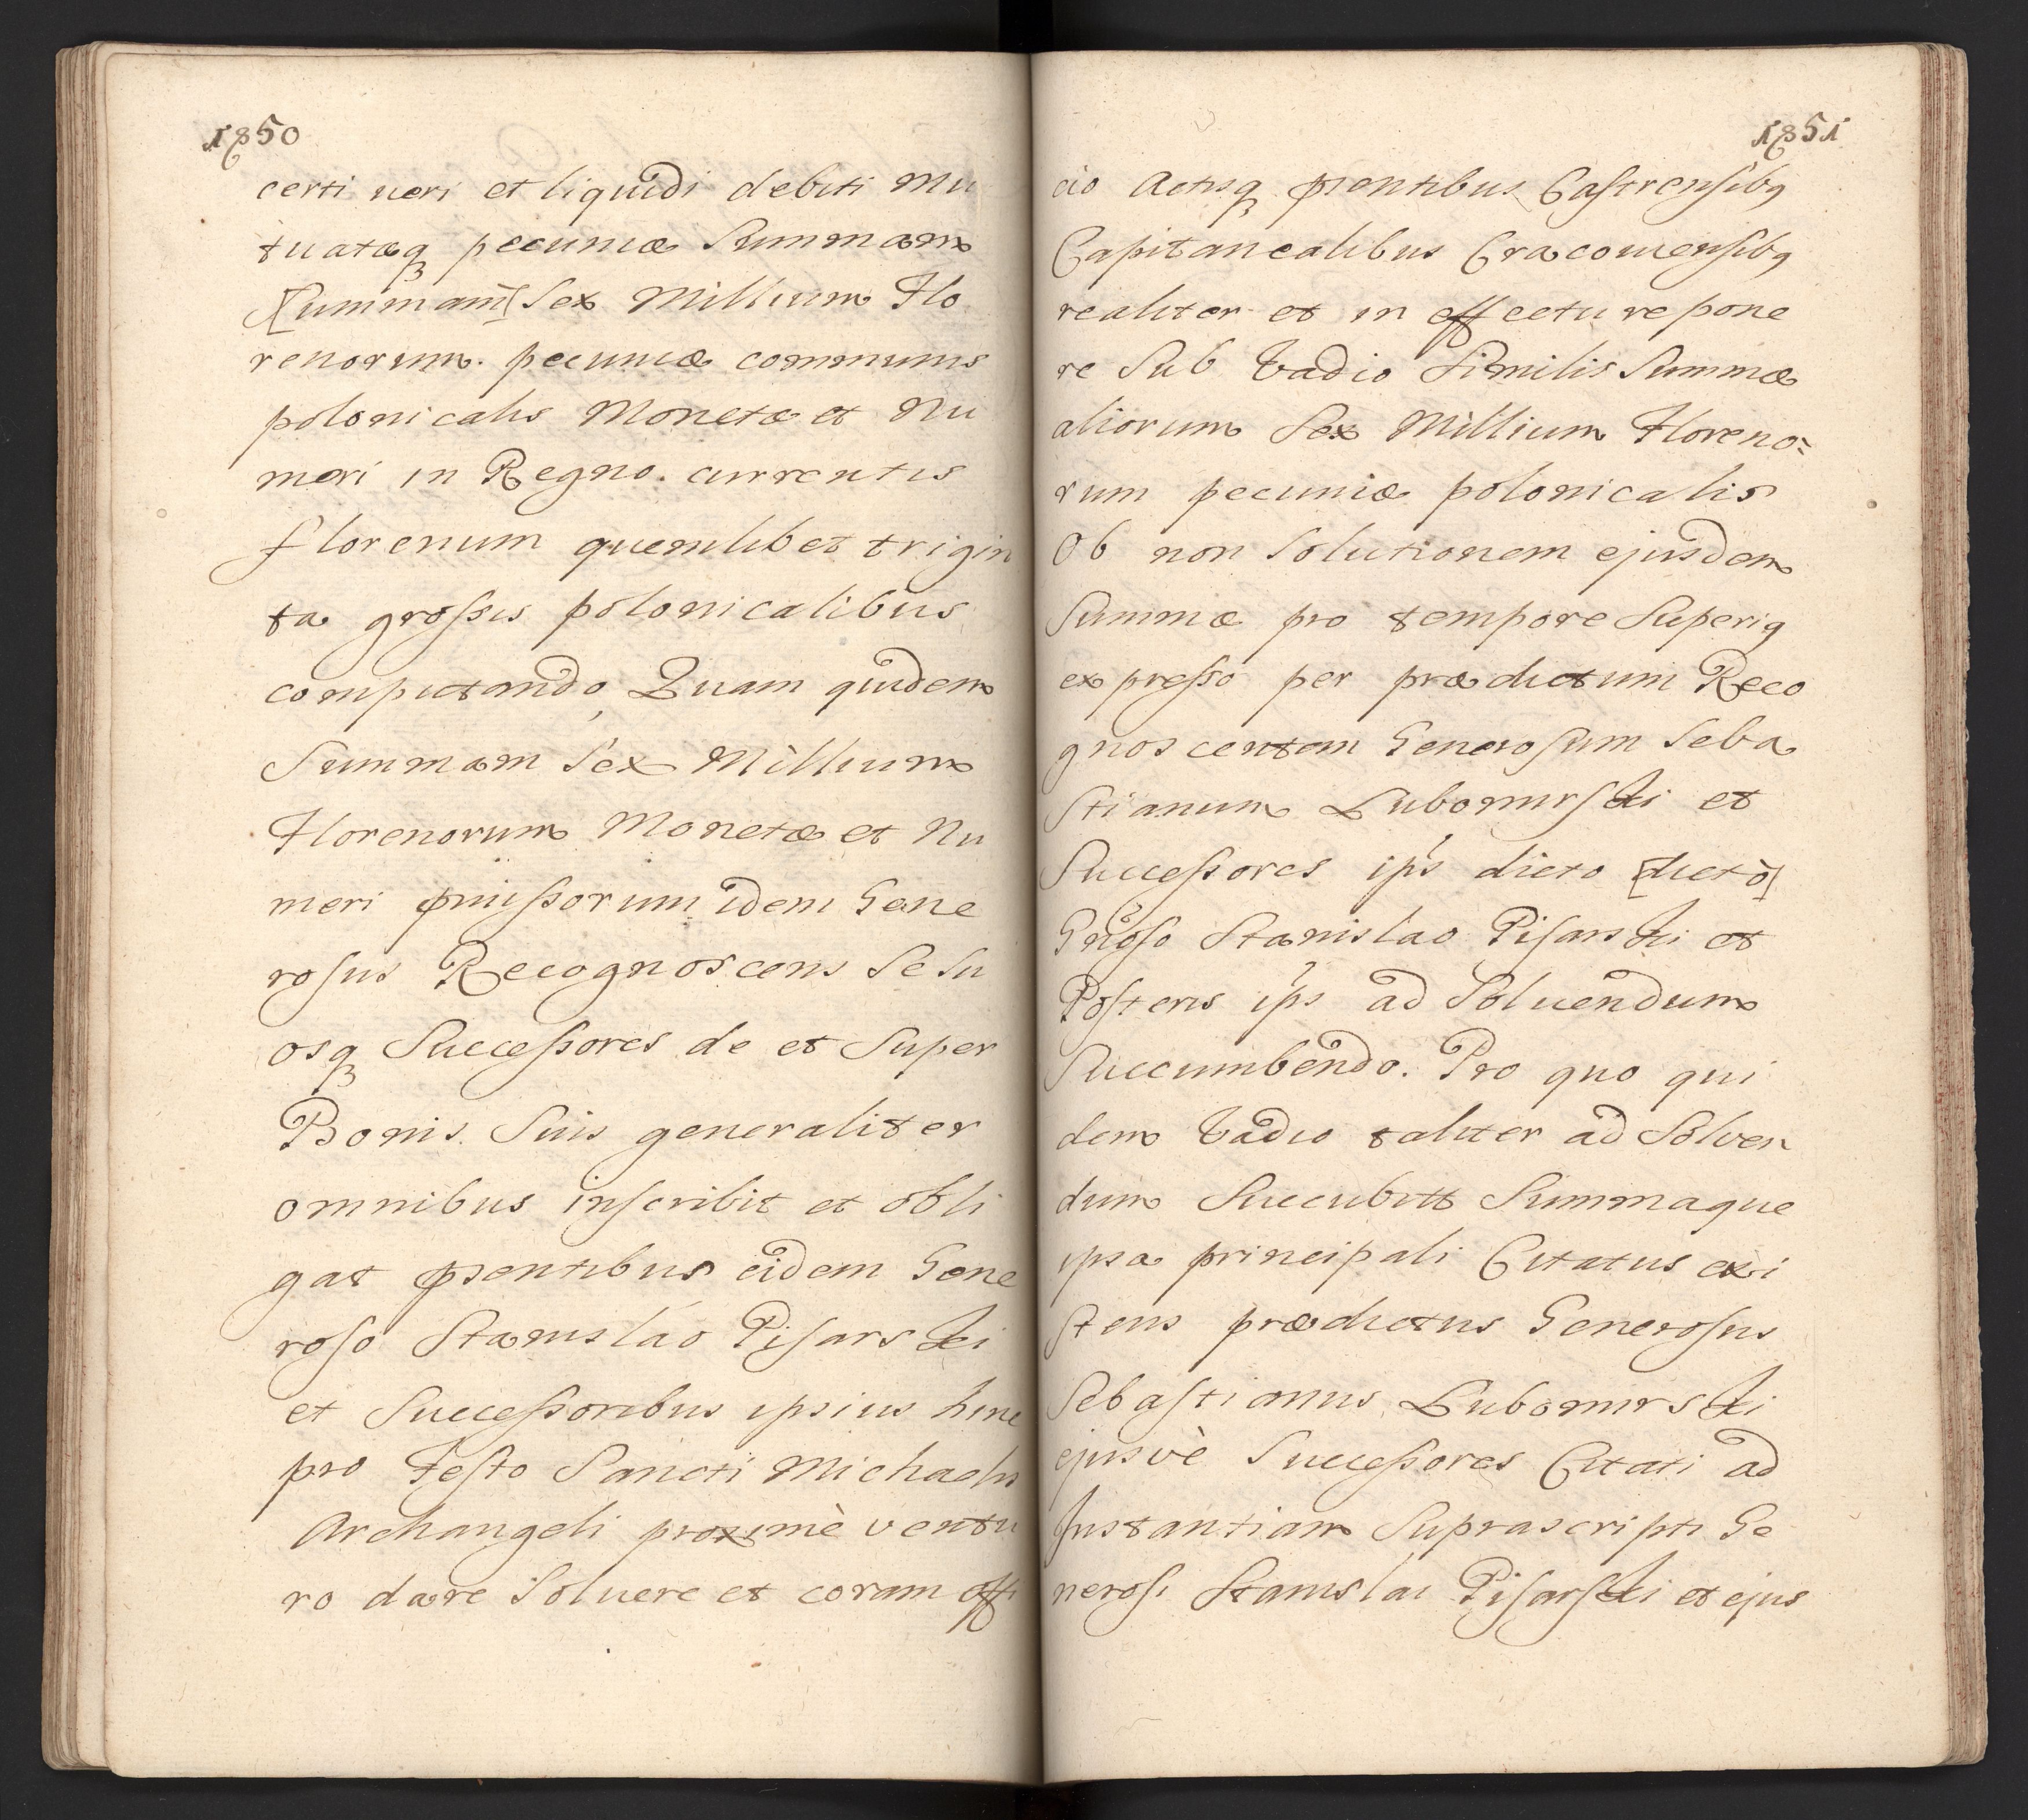 1850
certi veri et liquidi debiti Mu
tuatæq pecuniæ Summam
[Summam] Sex Millium Flo
renorum. pecuniæ communis
polonicalis Monetæ et Nu
meri in Regno. currentis
florenum quemlibet trigin
ta grossis polonicalibus
computando, Quam quidem
Summam Sex Millium
Florenorum Monetæ et Nu
meri pmissorum idem Gene
rosus Recognoscens Se Su
osq Successores de et Super
Bonis Suis generaliter
omnibus inscribit et obli
gat psentibus eidem Gene
roso Stanislao Pisarski
et Successoribus ipsius hinc
pro Festo Sancti Michaelis
Archangeli proximè ventu
ro dare Soluere et coram offi
1851
cio Actisq psentibus Castrensibq
Capitanealibus Cracoviensibq
realiter et in effectu repone
re Sub Vadio Similis Summæ
aliorum Sex Millium Floreno=
rum pecuniæ polonicalis
Ob non Solutionem ejusdem
Summæ pro tempore Superiq
expresso per prædictum Reco
gnoscentem Generosum Seba
stianum Lubomirski et
Successores ips dicto [dictò]
Gnoso Stanislao Pisarski et
Posteris ips ad Soluendum
Succumbendo. Pro quo qui
dem Vadio taliter ad Solven
dum Succubitt Summaque
ipsa principali Citatus exi
stens prædictus Generosus
Sebastianus Lubomirski
ejusvè Successores Citati ad
Instantiam Suprascripti Ge
nerosi Stanislai Pisarski et ejus